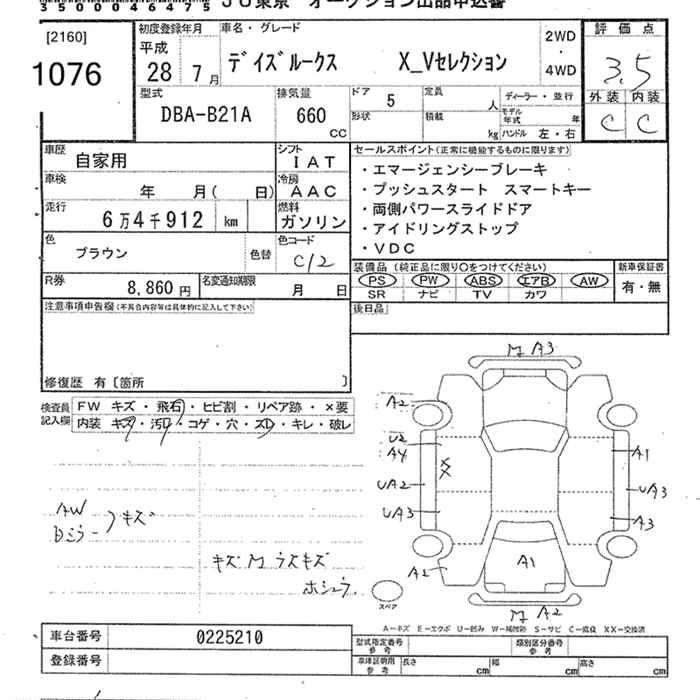 3500046475 JU東京 オークション出品申込書
[2160]
1076
初度登録年月
平成
28年7月
車名・グレード
デイズルークス X_Vセレクション
2WD
・
4WD
評価点
3.5
外装 内装
C C
型式
DBA-B21A
排気量
660
CC
ドア 5
形状
定員 人
積載 kg
ディーラー・並行
モデル年式 年
ハンドル 左・右
車歴
自家用
シフト
IAT
車検
年 月( 日)
冷房
AAC
走行
6万4千912 km
燃料
ガソリン
色
ブラウン
色替
色コード
C/2
R券
8,860円
名変通知期限
月 日
セールスポイント(正常に機能するものに限ります)
・エマージェンシーブレーキ
・プッシュスタート スマートキー
・両側パワースライドドア
・アイドリングストップ
・VDC
装備品(純正品に限り○をつけてください)
PS PW ABS エアB AW
SR ナビ TV カワ
新車保証書
有・無
後日品
注意事項申告欄(不具合内容等は具体的に記入して下さい)
修復歴 有〔箇所 〕
検査員
記入欄
FW キズ・飛石・ヒビ割・リペア跡・×要
内装 キズ・汚レ・コゲ・穴・スレ・キレ・破レ
AW
Bミラー
キズ
キズM ラスキズ
ホシュウ
M A3
A2
U2
A4
XX
UA2
UA3
A2
A1
UA3
A3
A1
M A2
スペア
A－キズ E－エクボ U－凹み W－補修跡 S－サビ C－腐食 XX－交換済
車台番号 0225210
登録番号
型式指定番号
参考
類別区分番号
参考
車庫証明用
参考
長さ cm
幅 cm
高さ cm